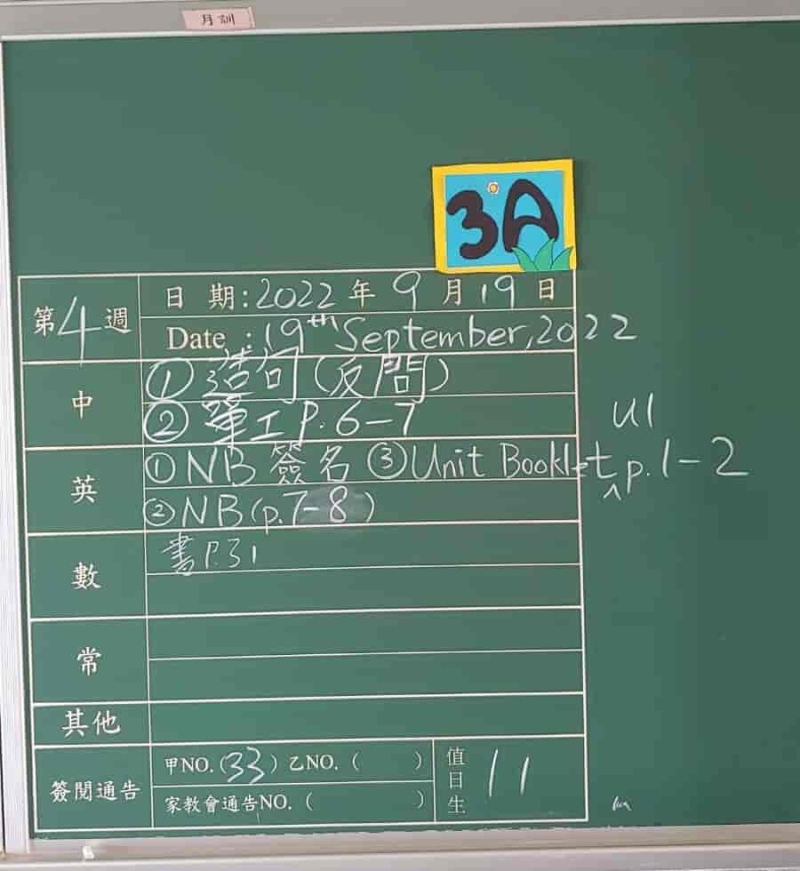 月訓
3A
第4週
日期:2022年9月19日
Date : 19th September, 2022
中
①造句(反問)
②單工P.6-7
英
①NB簽名 ③Unit Booklet U1 p.1-2
②NB(p.7-8)
數
書P.31
常
其他
簽閱通告
甲NO.(33) 乙NO.( )
家教會通告NO.( )
值日生
11